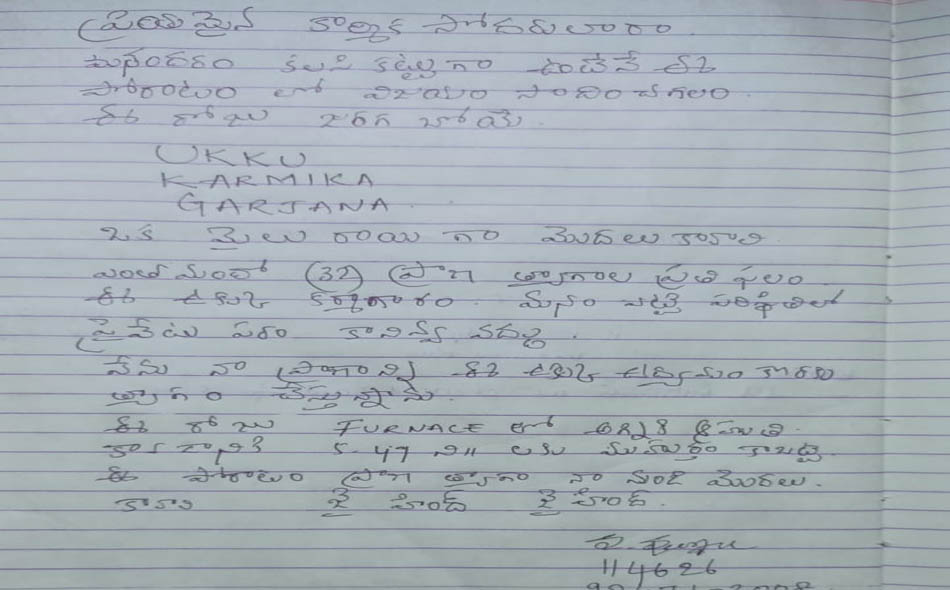 ప్రియమైన కార్మిక సోదరులారా
మనందరం కలసి కట్టుగా ఉంటేనే ఈ
పోరాటం లో విజయం సాధించగలం
ఈ రోజు జరగ బోయే
UKKU
KARMIKA
GARJANA
ఒక మైలు రాయి గా మొదలు కావాలి
ఎంతో మందో (32) ప్రాణ త్యాగాల ప్రతి ఫలం
ఈ ఉక్కు కర్మాగారం. మనం ఎట్టి పరిస్థితిలో
ప్రైవేటు పరం కానివ్వ వద్దు.
నేను నా ప్రాణాన్ని ఈ ఉక్కు ఉద్యమం కొరకు
త్యాగం చేస్తున్నాను.
ఈ రోజు FURNACE లో అగ్నికి ఆహుతి
కావడానికి 5-47 ని॥ లకు ముహుర్తం కాబట్టి
ఈ పోరాటం ప్రాణ త్యాగం నా నుండి మొదలు.
కావాలి జై హింద్ జై హింద్.
114626